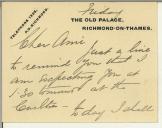 Friday
THE OLD PALACE,
RICHMOND-ON-THAMES.
TELEGRAMS
RICHMOND.
Cher Ami Just a line
to remind you that I
am expecting you at
1.30 tomorrow at the
Carlton – today I shall